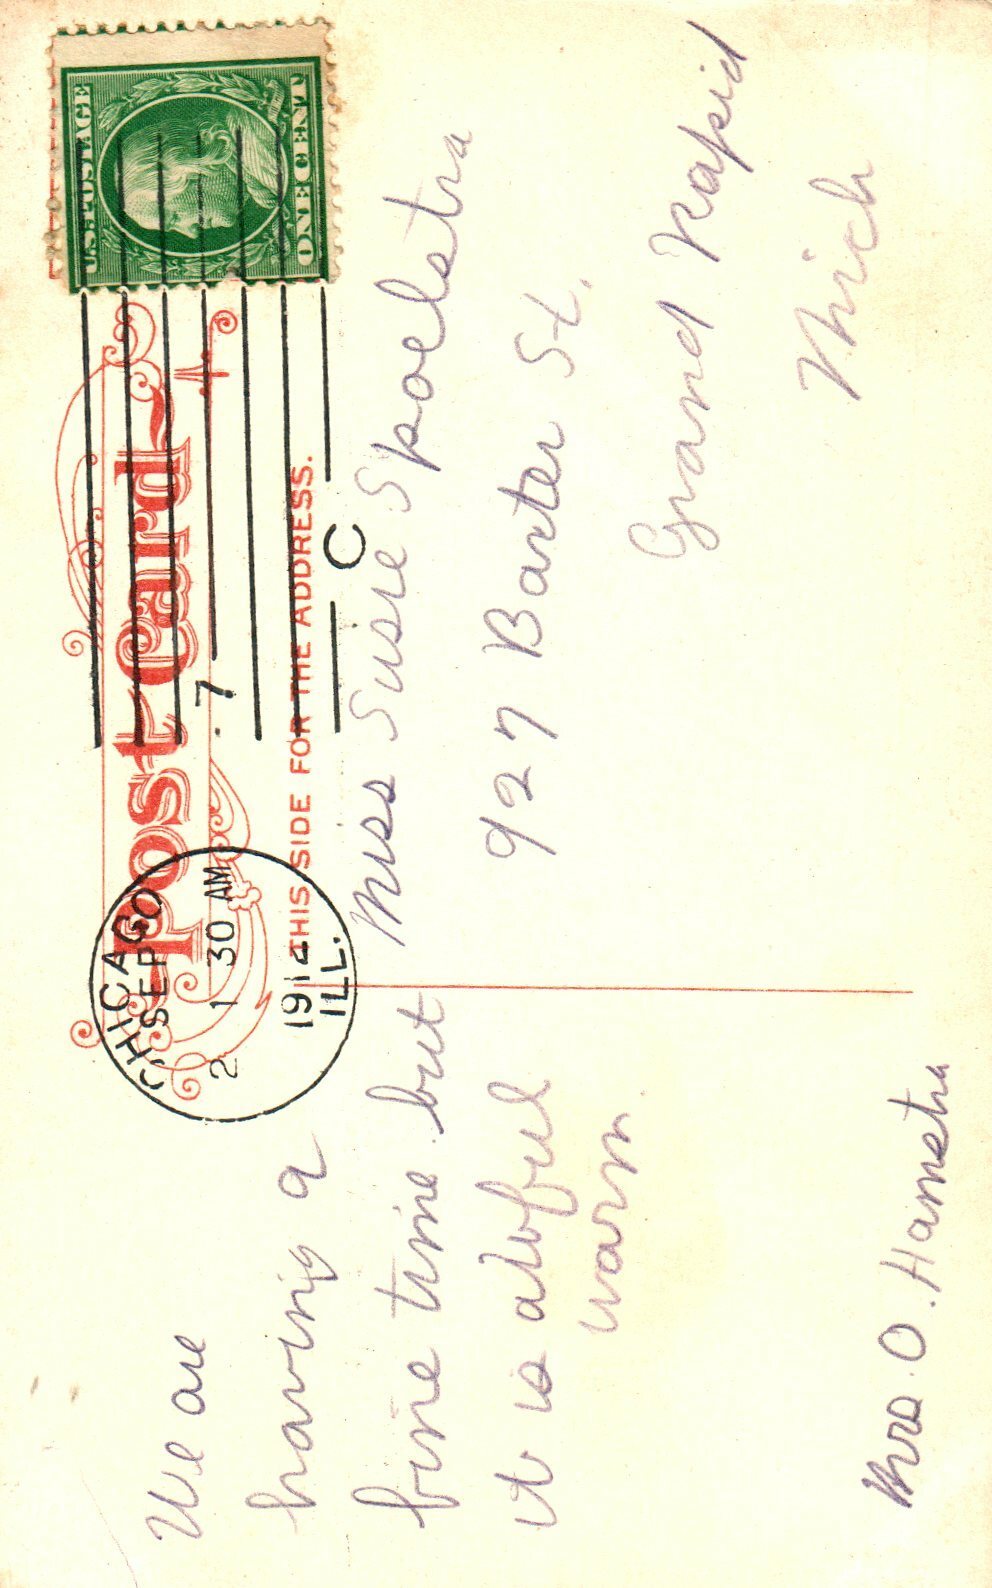 U.S. POSTAGE
ONE CENT
Post Card
THIS SIDE FOR THE ADDRESS.
CHICAGO
SEP
2 1 30 AM
1912
ILL.
7
C
We are
having a
fine time but
it is alofful
warm
Mrs. O. Hamstra
Miss Susie Spoelstra
927 Baxter St.
Grand Rapid
Mich